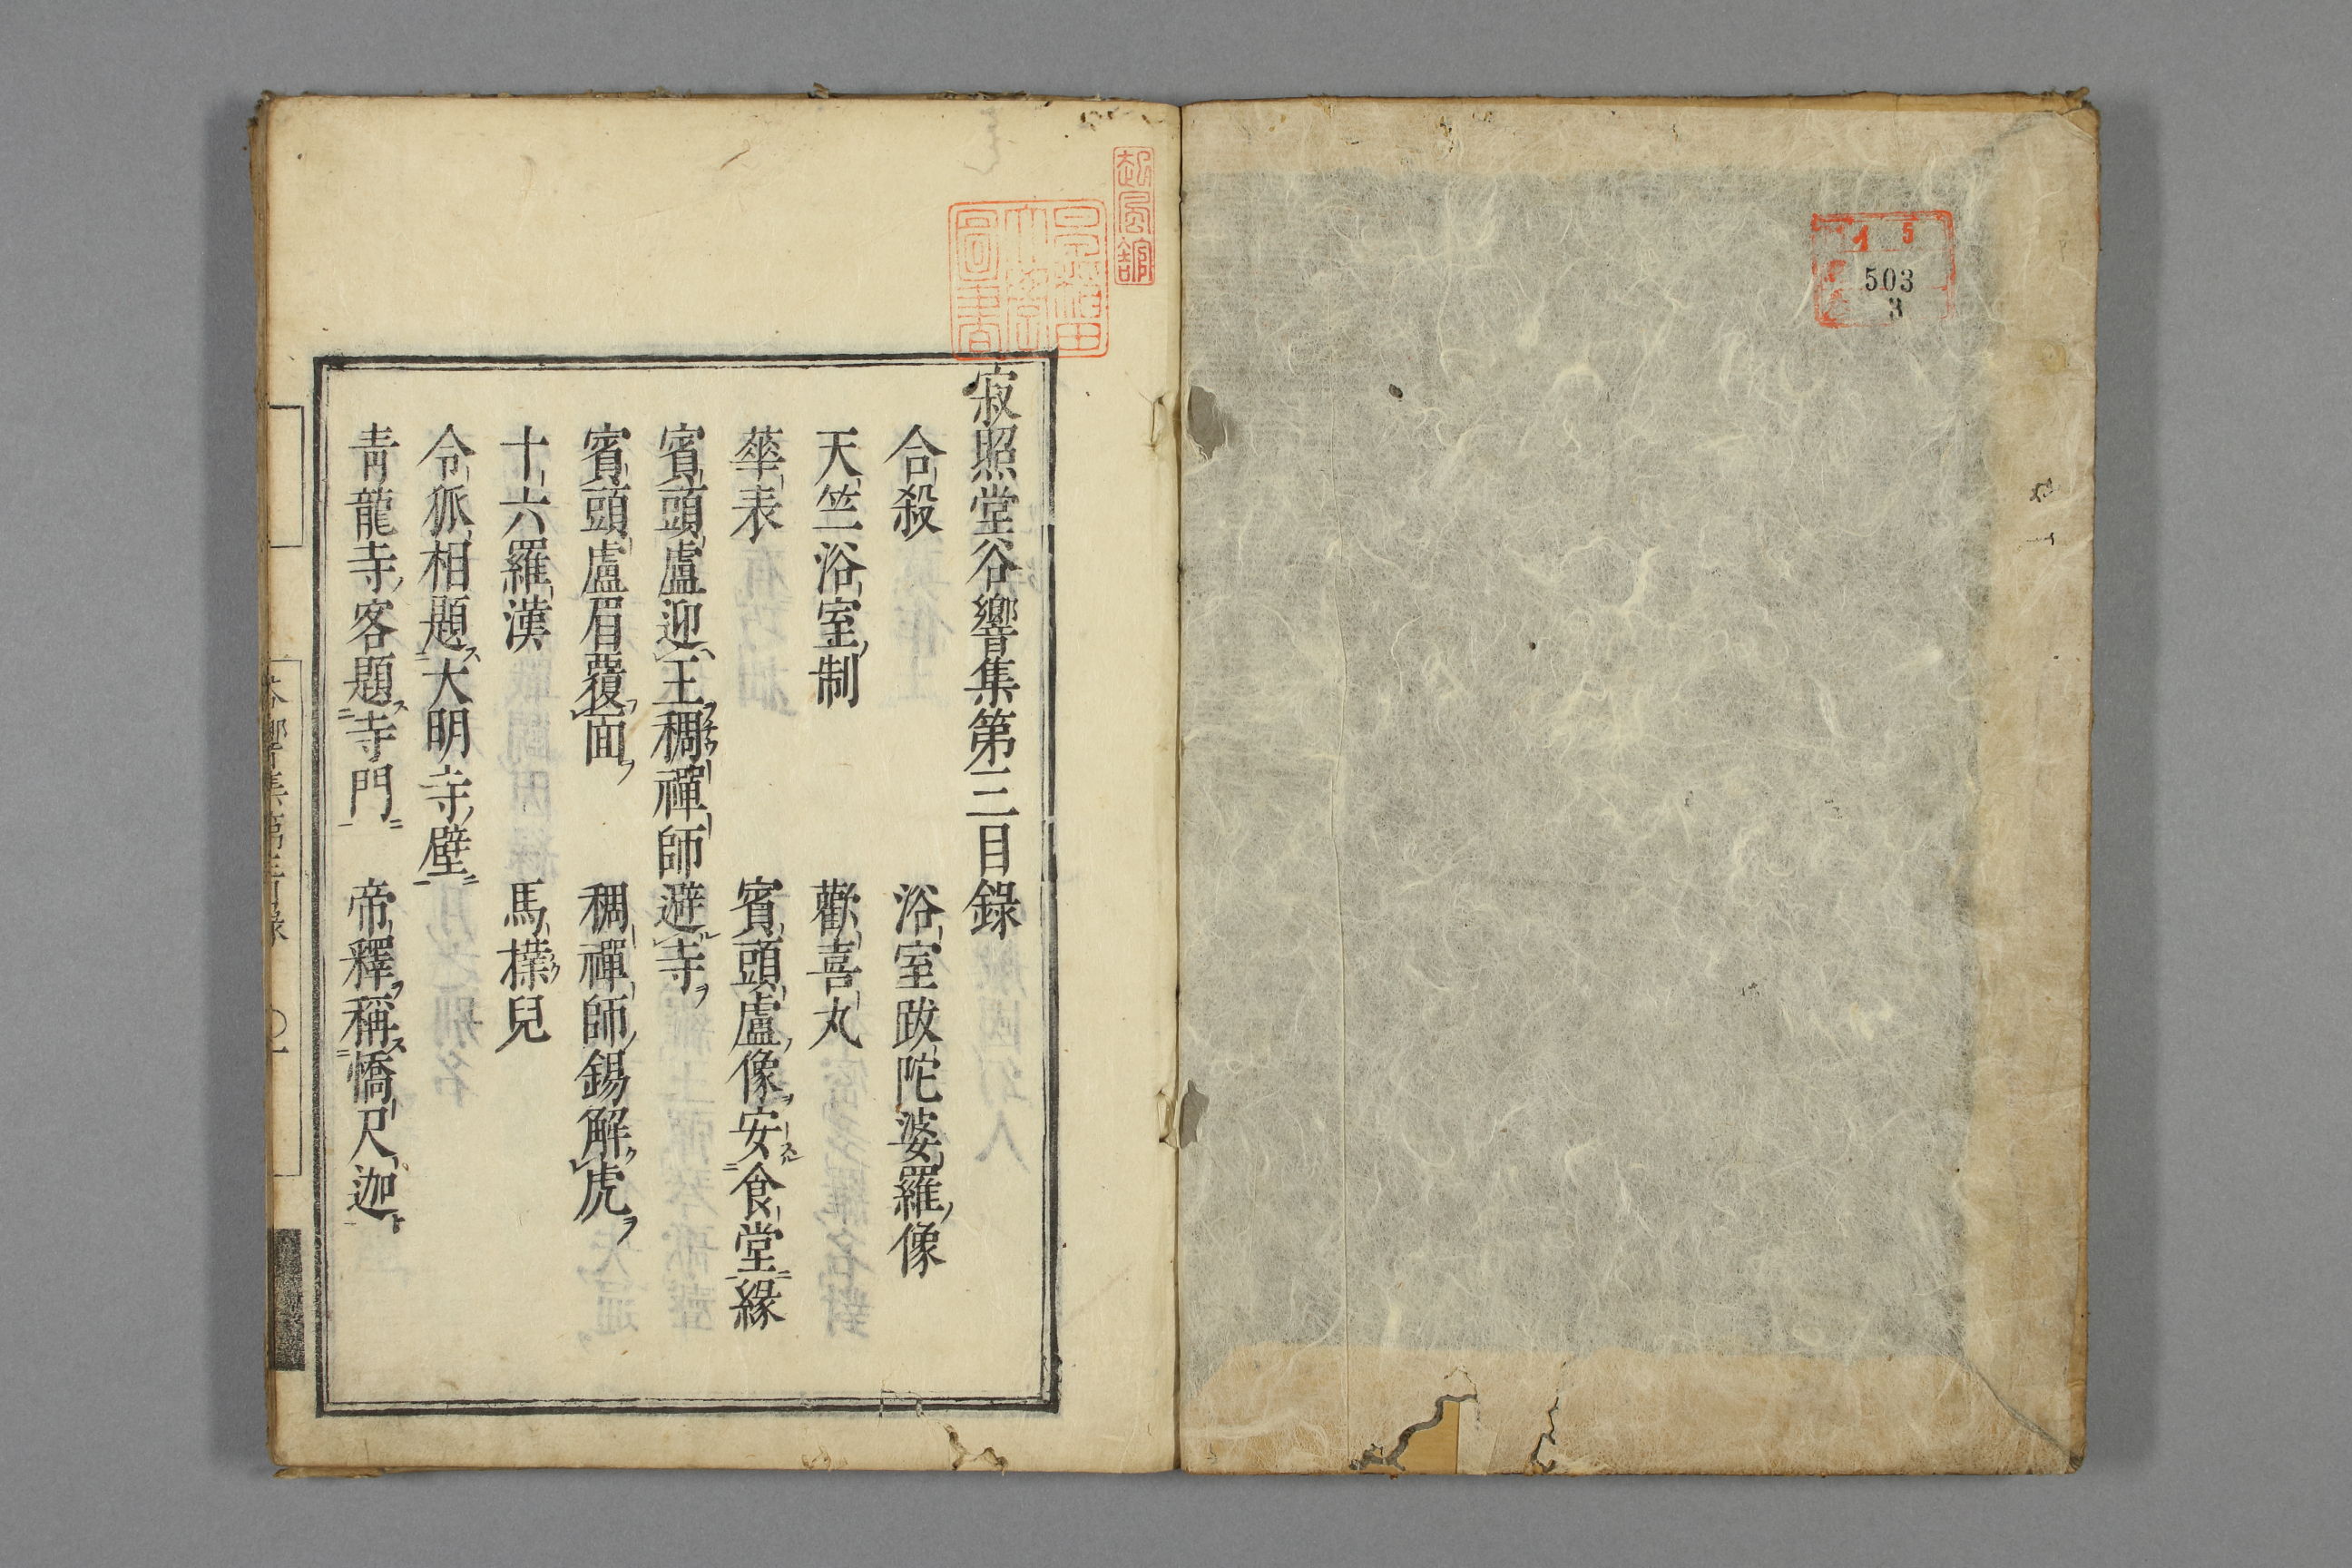 503
3
寂照堂谷響集第三目錄
合殺　浴室跋陀婆羅像
天竺浴室制　歡喜丸
華表　賓頭盧像安食堂緣
賓頭盧迎王稠禪師避寺
賓頭盧眉覆面　稠禪師錫解虎
十六羅漢　馬㩧兒
令狐相題大明寺壁
青龍寺客題寺門　帝釋稱憍尺迦